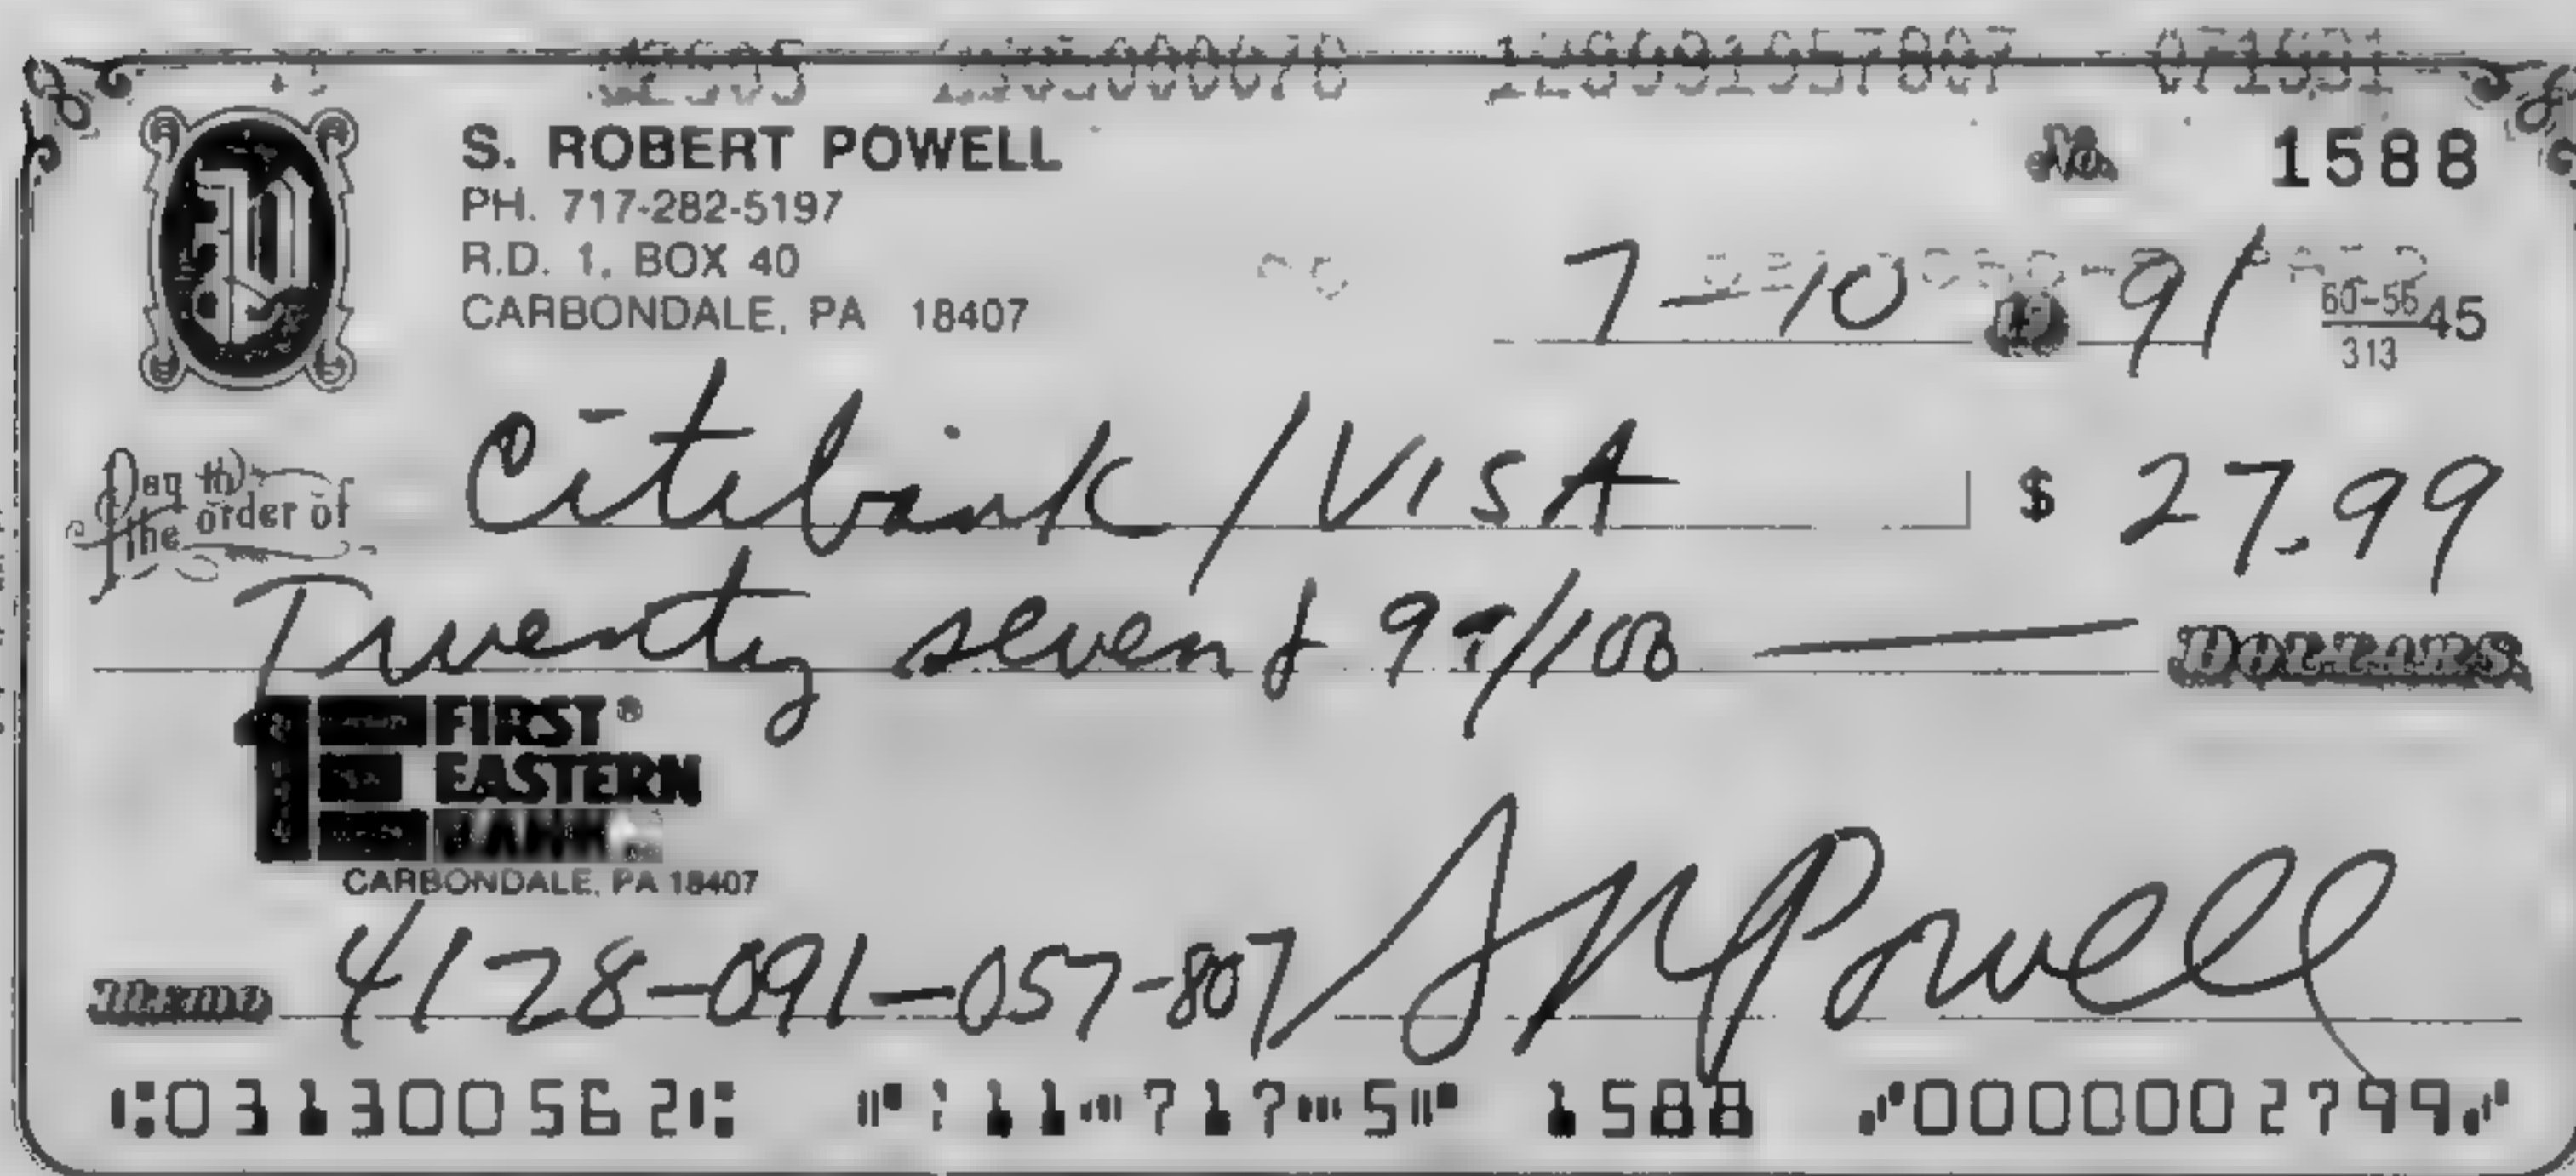 S. ROBERT POWELL
PH. 717-282-5197
R.D. 1, BOX 40
CARBONDALE, PA 18407
No. 1588
7-10 19 91
60-56 45
313
Pay to the order of Citibank/VISA $ 27.99
Twenty seven & 99/100 DOLLARS
FIRST®
EASTERN
BANK
CARBONDALE, PA 18407
Memo 4128-091-057-807 SRPowell
031300562 11 717 5 1588 0000002799